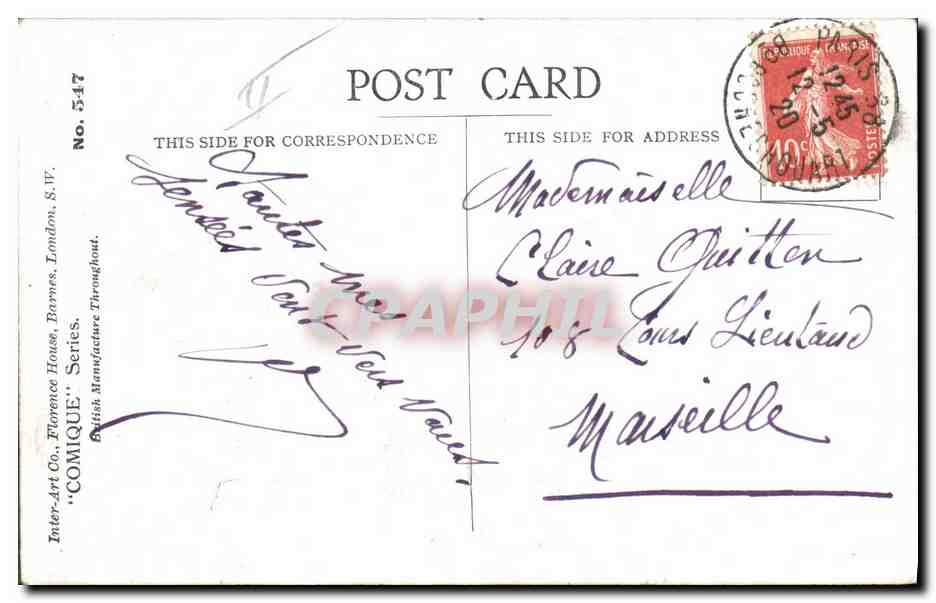 POST CARD
THIS SIDE FOR CORRESPONDENCE
THIS SIDE FOR ADDRESS
No. 547
Inter-Art Co., Florence House, Barnes, London, S.W.
"COMIQUE" Series.
British Manufacture Throughout.
Toutes mes
Pensées Vont Vers Vous.
Mademoiselle
Claire Guitton
108 Cours Lieutaud
Marseille
REPUBLIQUE FRANÇAISE
10c
POSTES
PARIS
12 45
12 - 5
20
R. ROCHECHOUART
CPAPHIL
II